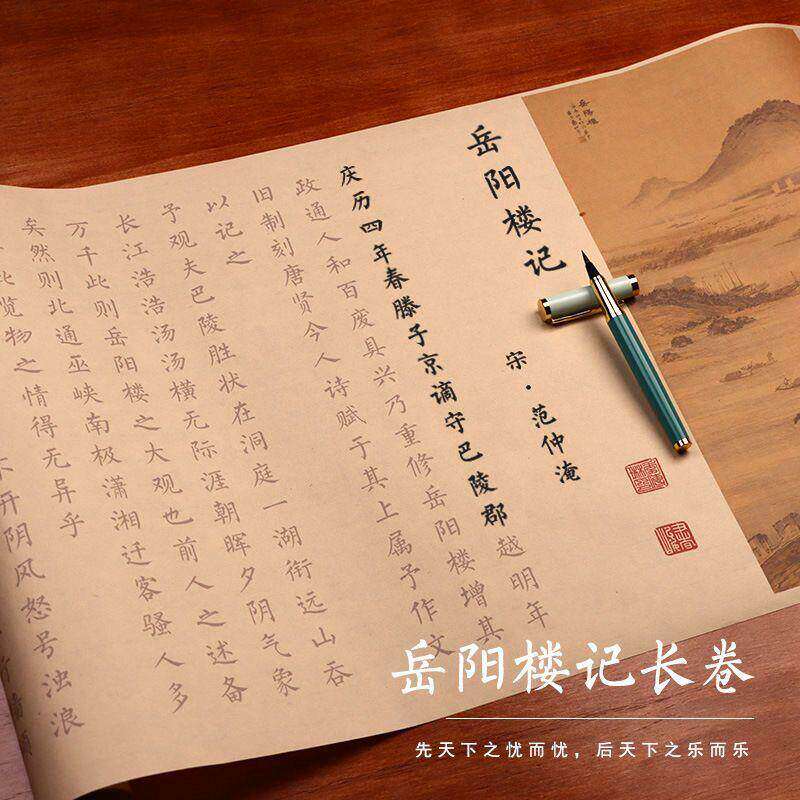 岳阳楼记
宋·范仲淹
庆历四年春滕子京谪守巴陵郡越明年
政通人和百废具兴乃重修岳阳楼增其
旧制刻唐贤今人诗赋于其上属予作文
以记之
予观夫巴陵胜状在洞庭一湖衔远山吞
长江浩浩汤汤横无际涯朝晖夕阴气象
万千此则岳阳楼之大观也前人之述备
矣然则北通巫峡南极潇湘迁客骚人多
此览物之情得无异乎
开阴风怒号浊浪
岳阳楼记长卷
先天下之忧而忧，后天下之乐而乐